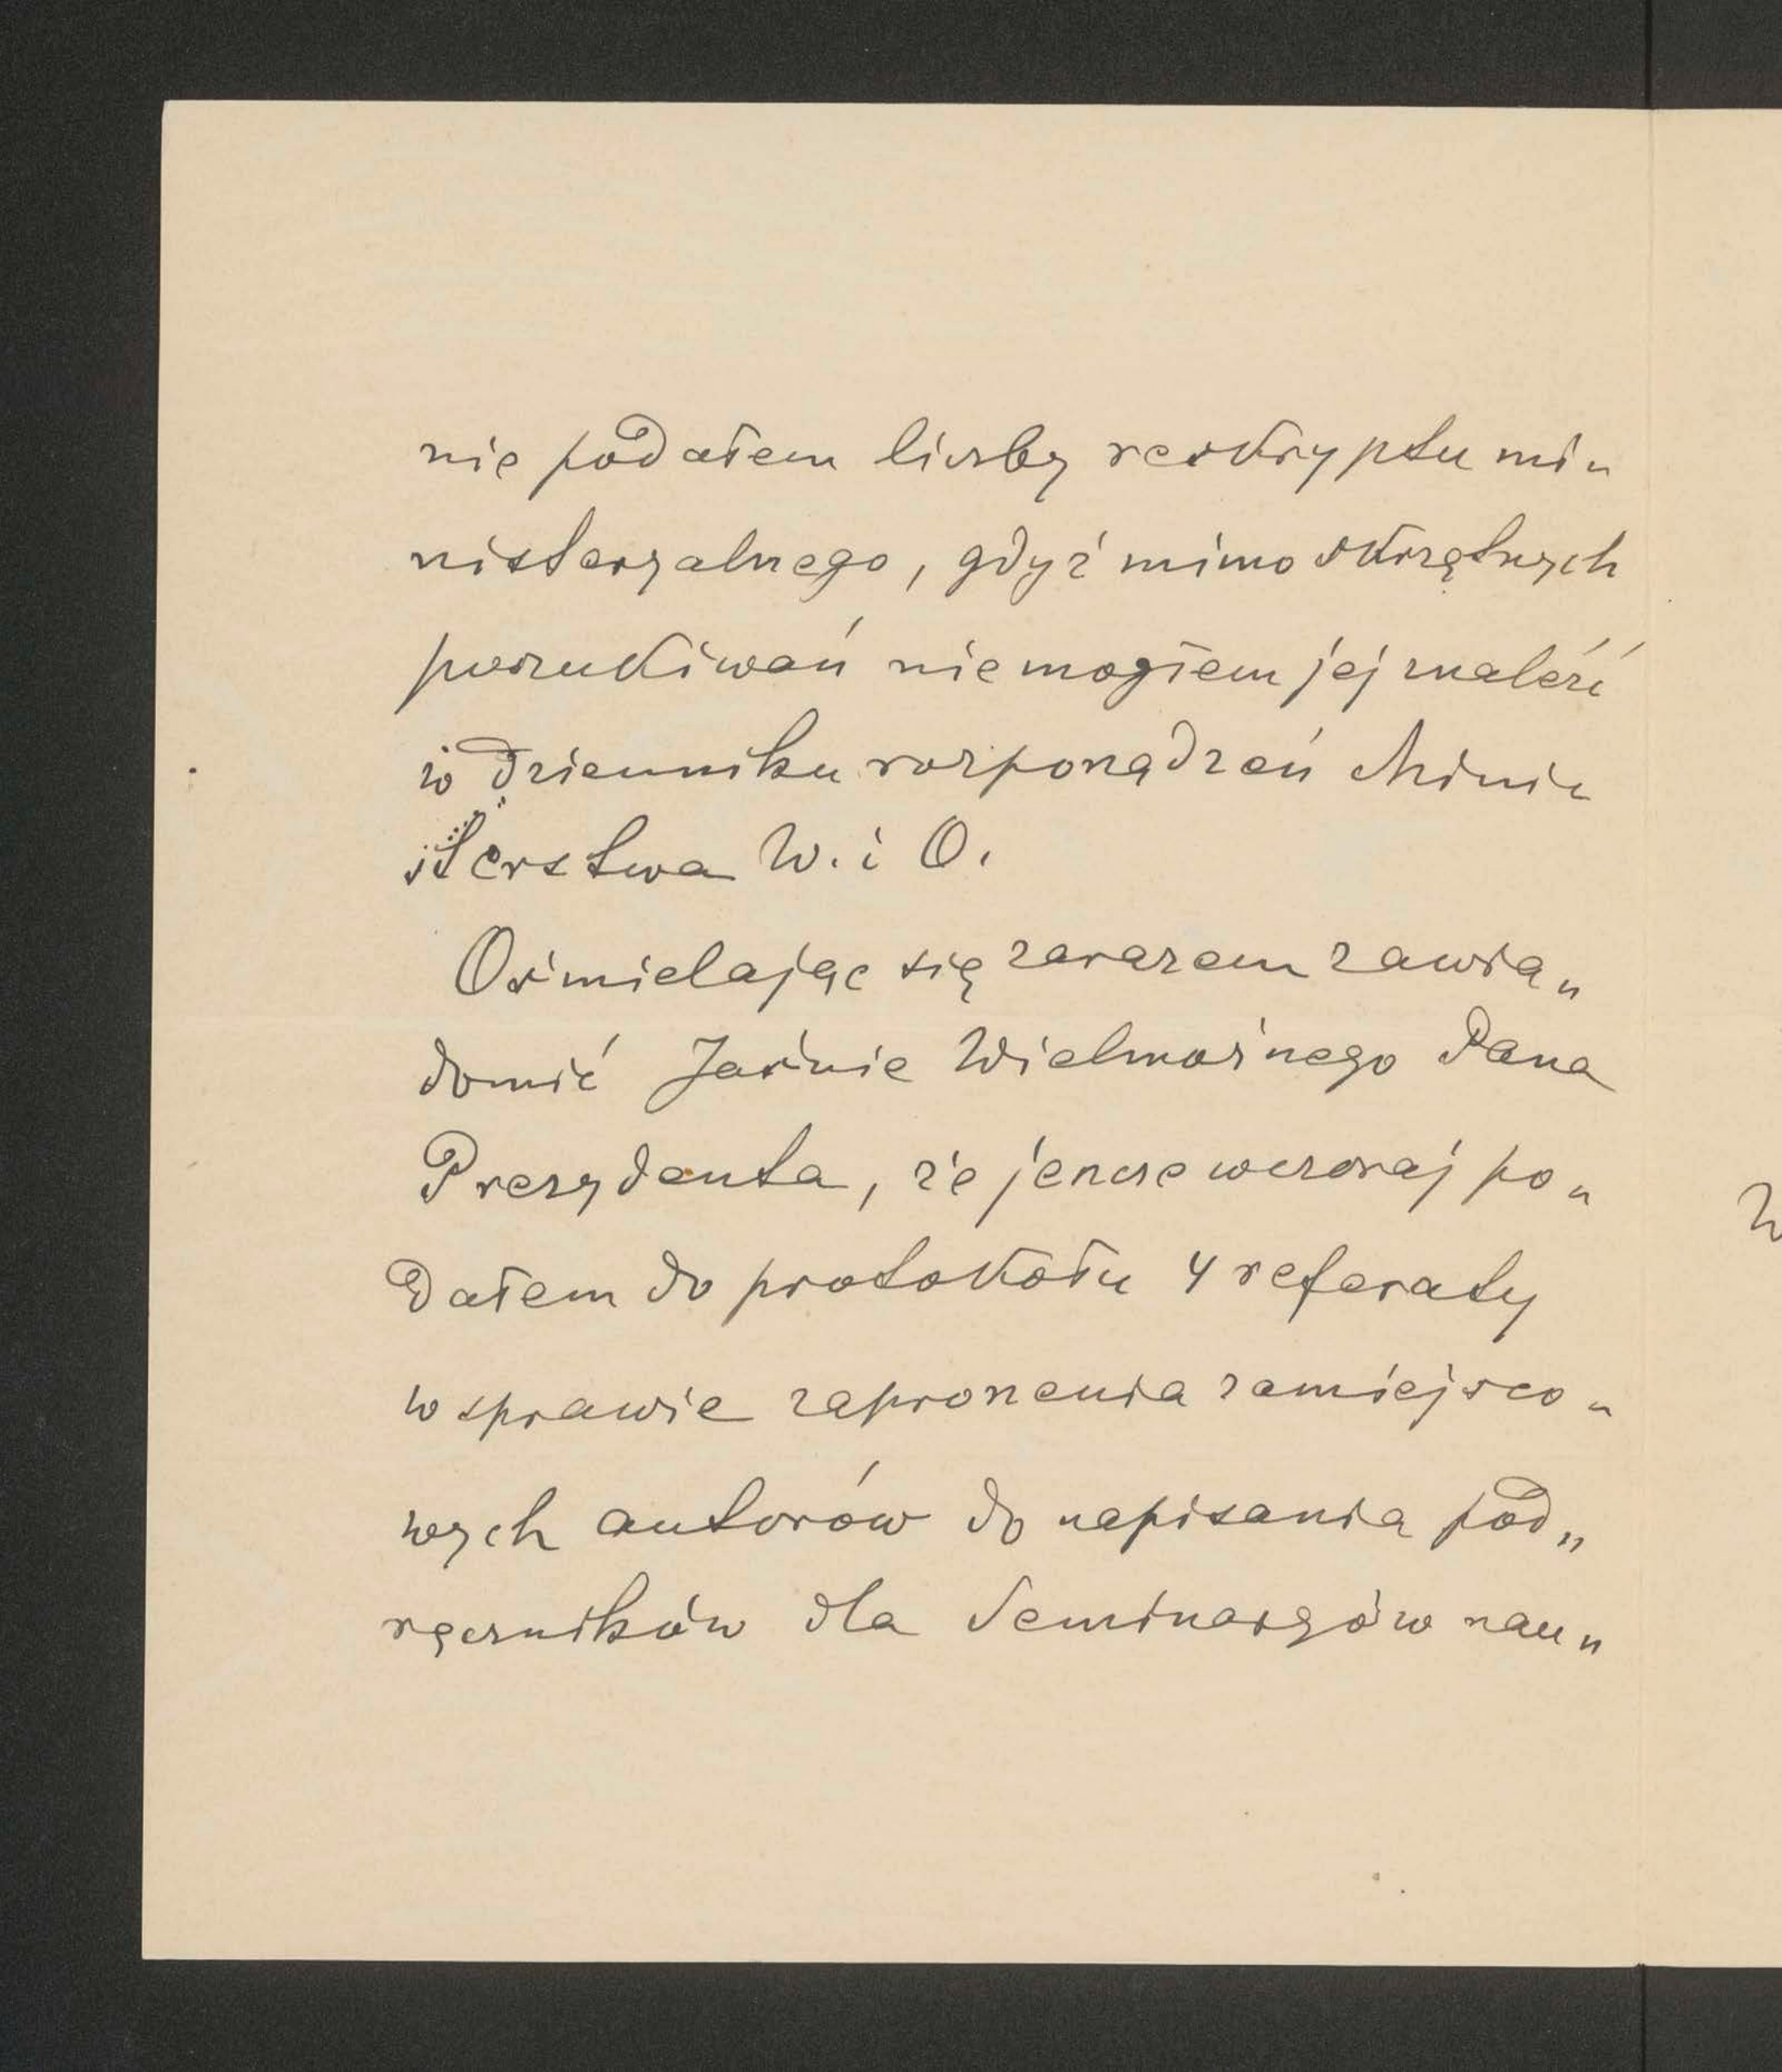 nie podałem liczby reskryptu mi„
nisteryalnego, gdyż mimo skrzętnych
poszukiwań nie mogłem jej znaleźć
w dzienniku rozporządzeń Mini„
sterstwa W. i O.
Ośmielając się zarazem zawia„
domić Jaśnie Wielmożnego Pana
Prezydenta, że jeszcze wczoraj po„
dałem do protokołu 4 referaty
w sprawie zaproszenia zamiejsco„
wych autorów do napisania pod„
ręczników dla Seminaryów nau„
W